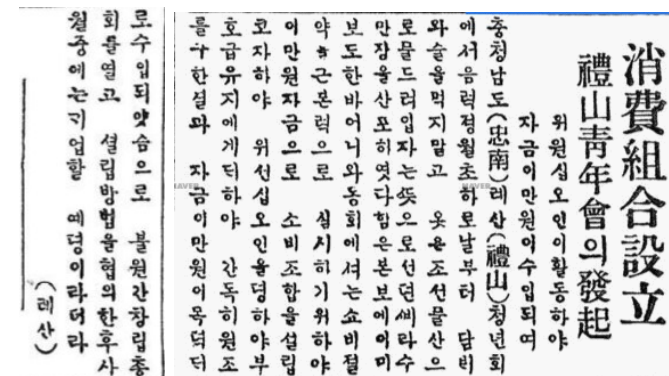 消費組合設立
禮山靑年會의發起
위원십오인이활동하야
자금이만원이수입되여
충청남도(忠南)례산(禮山)청년회
에서음력정월초하로날부터 담배
와술을먹지말고 옷은조선물산으
로물드려입자는뜻으로선뎐삐라수
만장을산포히엿다함은본보에이미
보도한바어니와동회에셔는쇼비절
약을근본력으로 실시하기위하야
이만원자금으로 소비조합을설립
코자하야 위선십오인을뎡하야부
호급유지에게더하야 간독히원조
를 한결과 자금이만원
로수입되얏슴으로 불원간창립총
회를열고 설립방법을협의한후사
월중에는긔업할 예뎡이라더라
(례산)
NAVER
NAVER